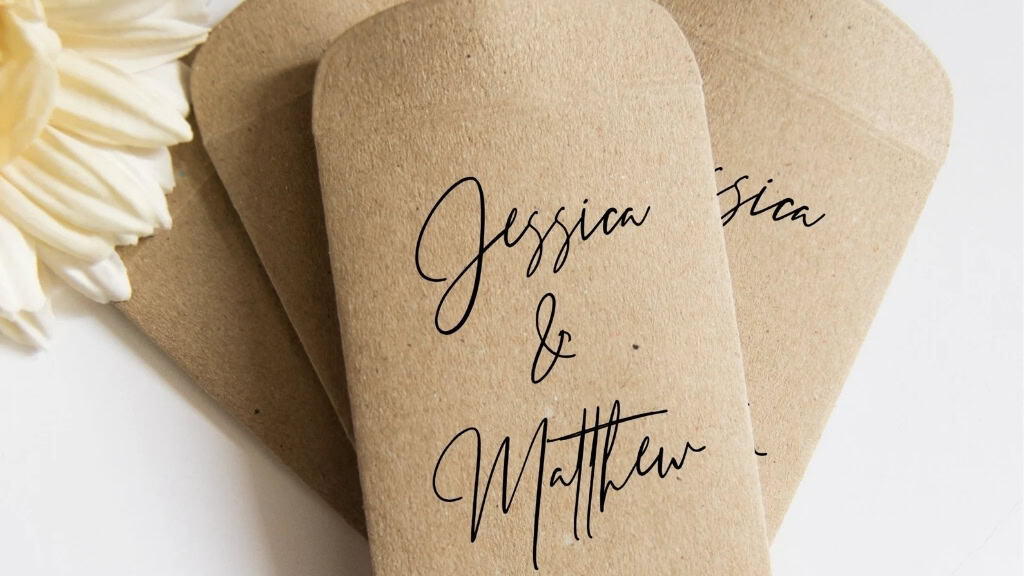 Jessica
&
Matthew
ssica